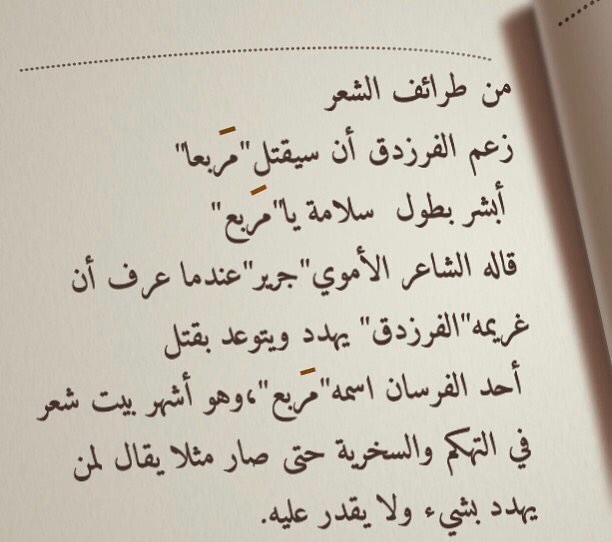 من طرائف الشعر
زعم الفرزدق أن سيقتل"مَربعا"
أبشر بطول سلامة يا"مَربع"
قاله الشاعر الأموي"جرير"عندما عرف أن
غريمه"الفرزدق" يهدد ويتوعد بقتل
أحد الفرسان اسمه"مَربع"،وهو أشهر بيت شعر
في التهكم والسخرية حتى صار مثلا يقال لمن
يهدد بشيء ولا يقدر عليه.